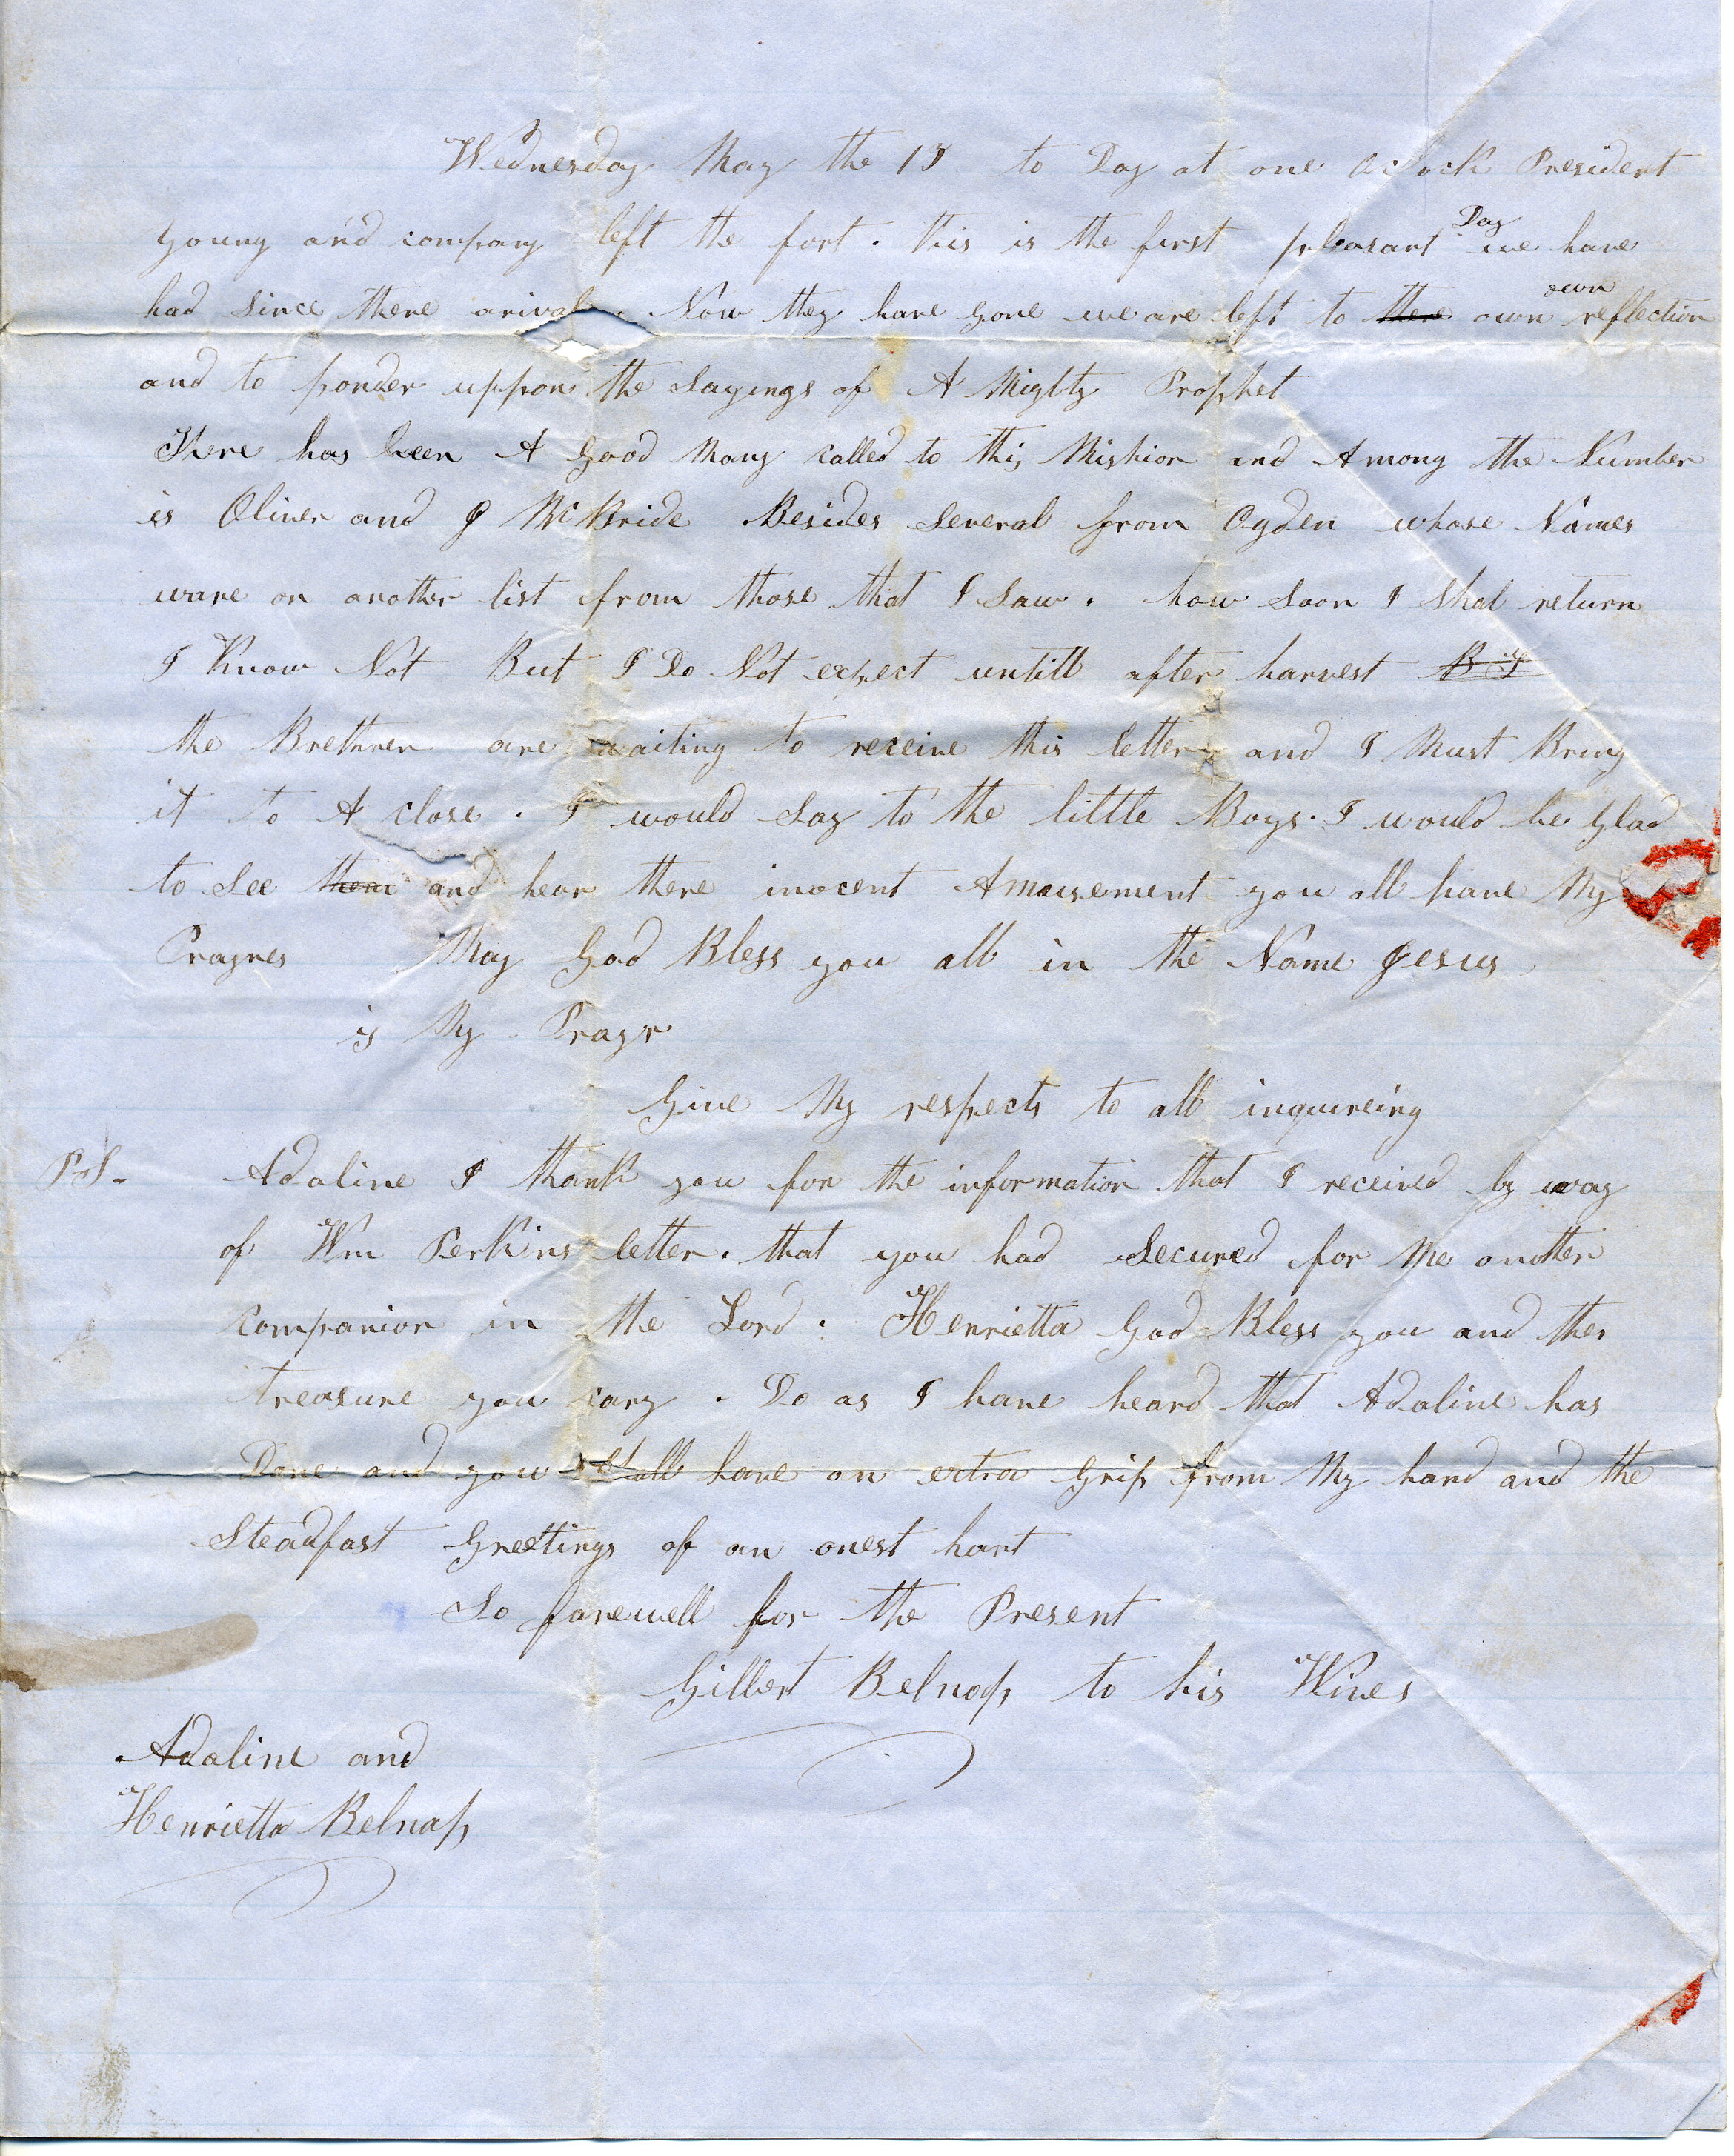 Wednesday May the 13 to Day at one Oclock President
Young and company left the fort. this is the first pleasant Day we have
had Since there arival. Now they have gone we are left to there own own reflection
and to ponder uppon the Sayings of A Mighty Prophet
There has been A Good Many Called to this Mishion and Among the Number
is Oliver and J McBride Besides Several from Ogden whose Names
ware on another list from those that I Saw. how Soon I Shal return
I Know Not But I Do Not expect untill after harvest B I
the Brethren are waiting to receive this letter and I Must Bring
it to A close. I would Say to the little Boys. I would be Glad
to See them and hear there inocent Amausement you all have My
Prayres May God Bless you all in the Name Jesus
is My Prayr
Give My respects to all inquireing
P.S. Adaline I thank you for the information that I received by way
of Wm Perkins letter. that you had Secured for Me another
Companion in the Lord. Henrietta God Bless you and the
treasure you cary. Do as I have heard that Adaline has
Done and you Shall have an extra Grip from My hand and the
Steadfast Greetings of an onest hart
So farewell for the Present
Gilbert Belnap to his Wives
Adaline and
Henrietta Belnap